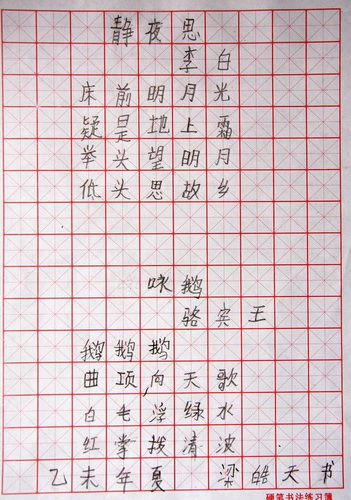 静夜思
李白
床前明月光
疑是地上霜
举头望明月
低头思故乡
咏鹅
骆宾王
鹅鹅鹅
曲项向天歌
白毛浮绿水
红掌拨清波
乙未年夏 梁皓天书
硬笔书法练习簿